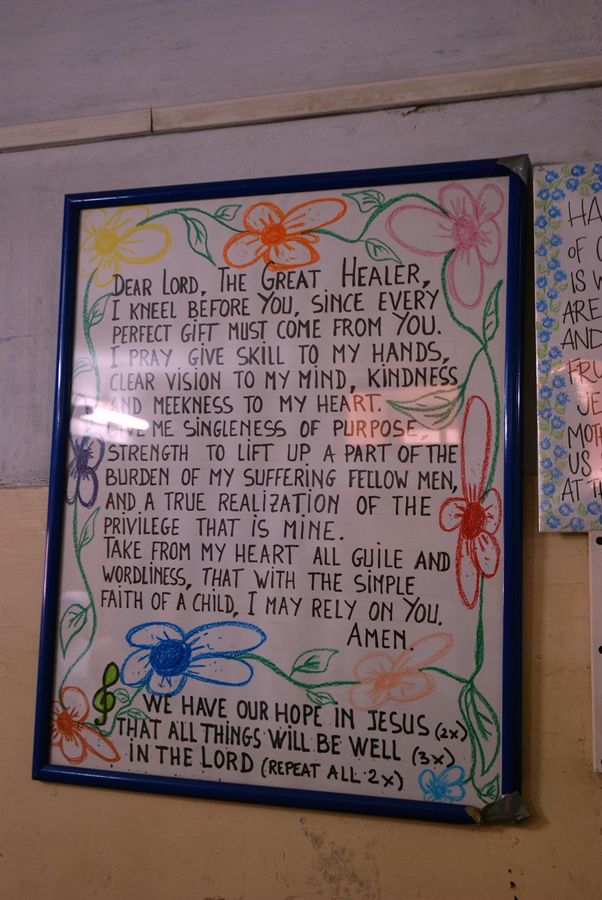 Dear Lord, The Great Healer,
I kneel before You, since every
perfect gift must come from You.
I pray give skill to my hands,
clear vision to my mind, kindness
and meekness to my heart.
Give me singleness of purpose,
strength to lift up a part of the
burden of my suffering fellow men,
and a true realization of the
privilege that is mine.
Take from my heart all guile and
wordliness, that with the simple
faith of a child, I may rely on You.
Amen.
We have our hope in Jesus (2x)
that all things will be well (3x)
in the Lord (repeat all 2x)
of
is
are
and
us
at